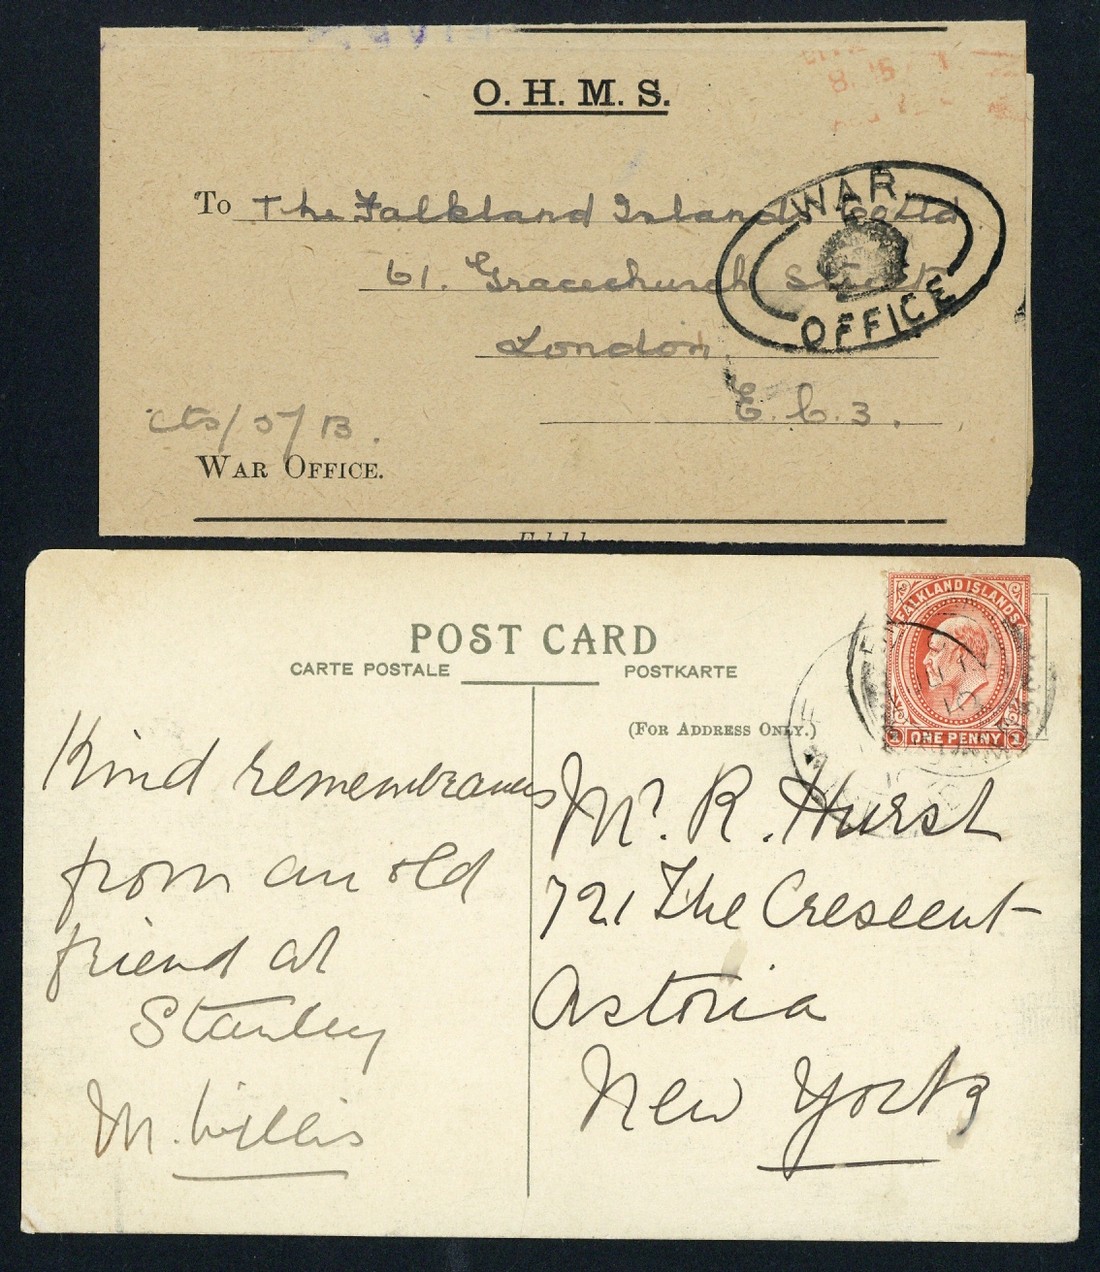 O. H. M. S.
To The Falkland Islands Co Ltd
61. Gracechurch Street
London
E. C. 3.
WAR
OFFICE
cts/5/13.
WAR OFFICE.
POST CARD
CARTE POSTALE
POSTKARTE
(FOR ADDRESS ONLY.)
FALKLAND ISLANDS
1 ONE PENNY 1
Kind remembrances
from an old
friend at
Stanley
M. Willis
Mr. R. Hurst
721 The Crescent
Astoria
New York